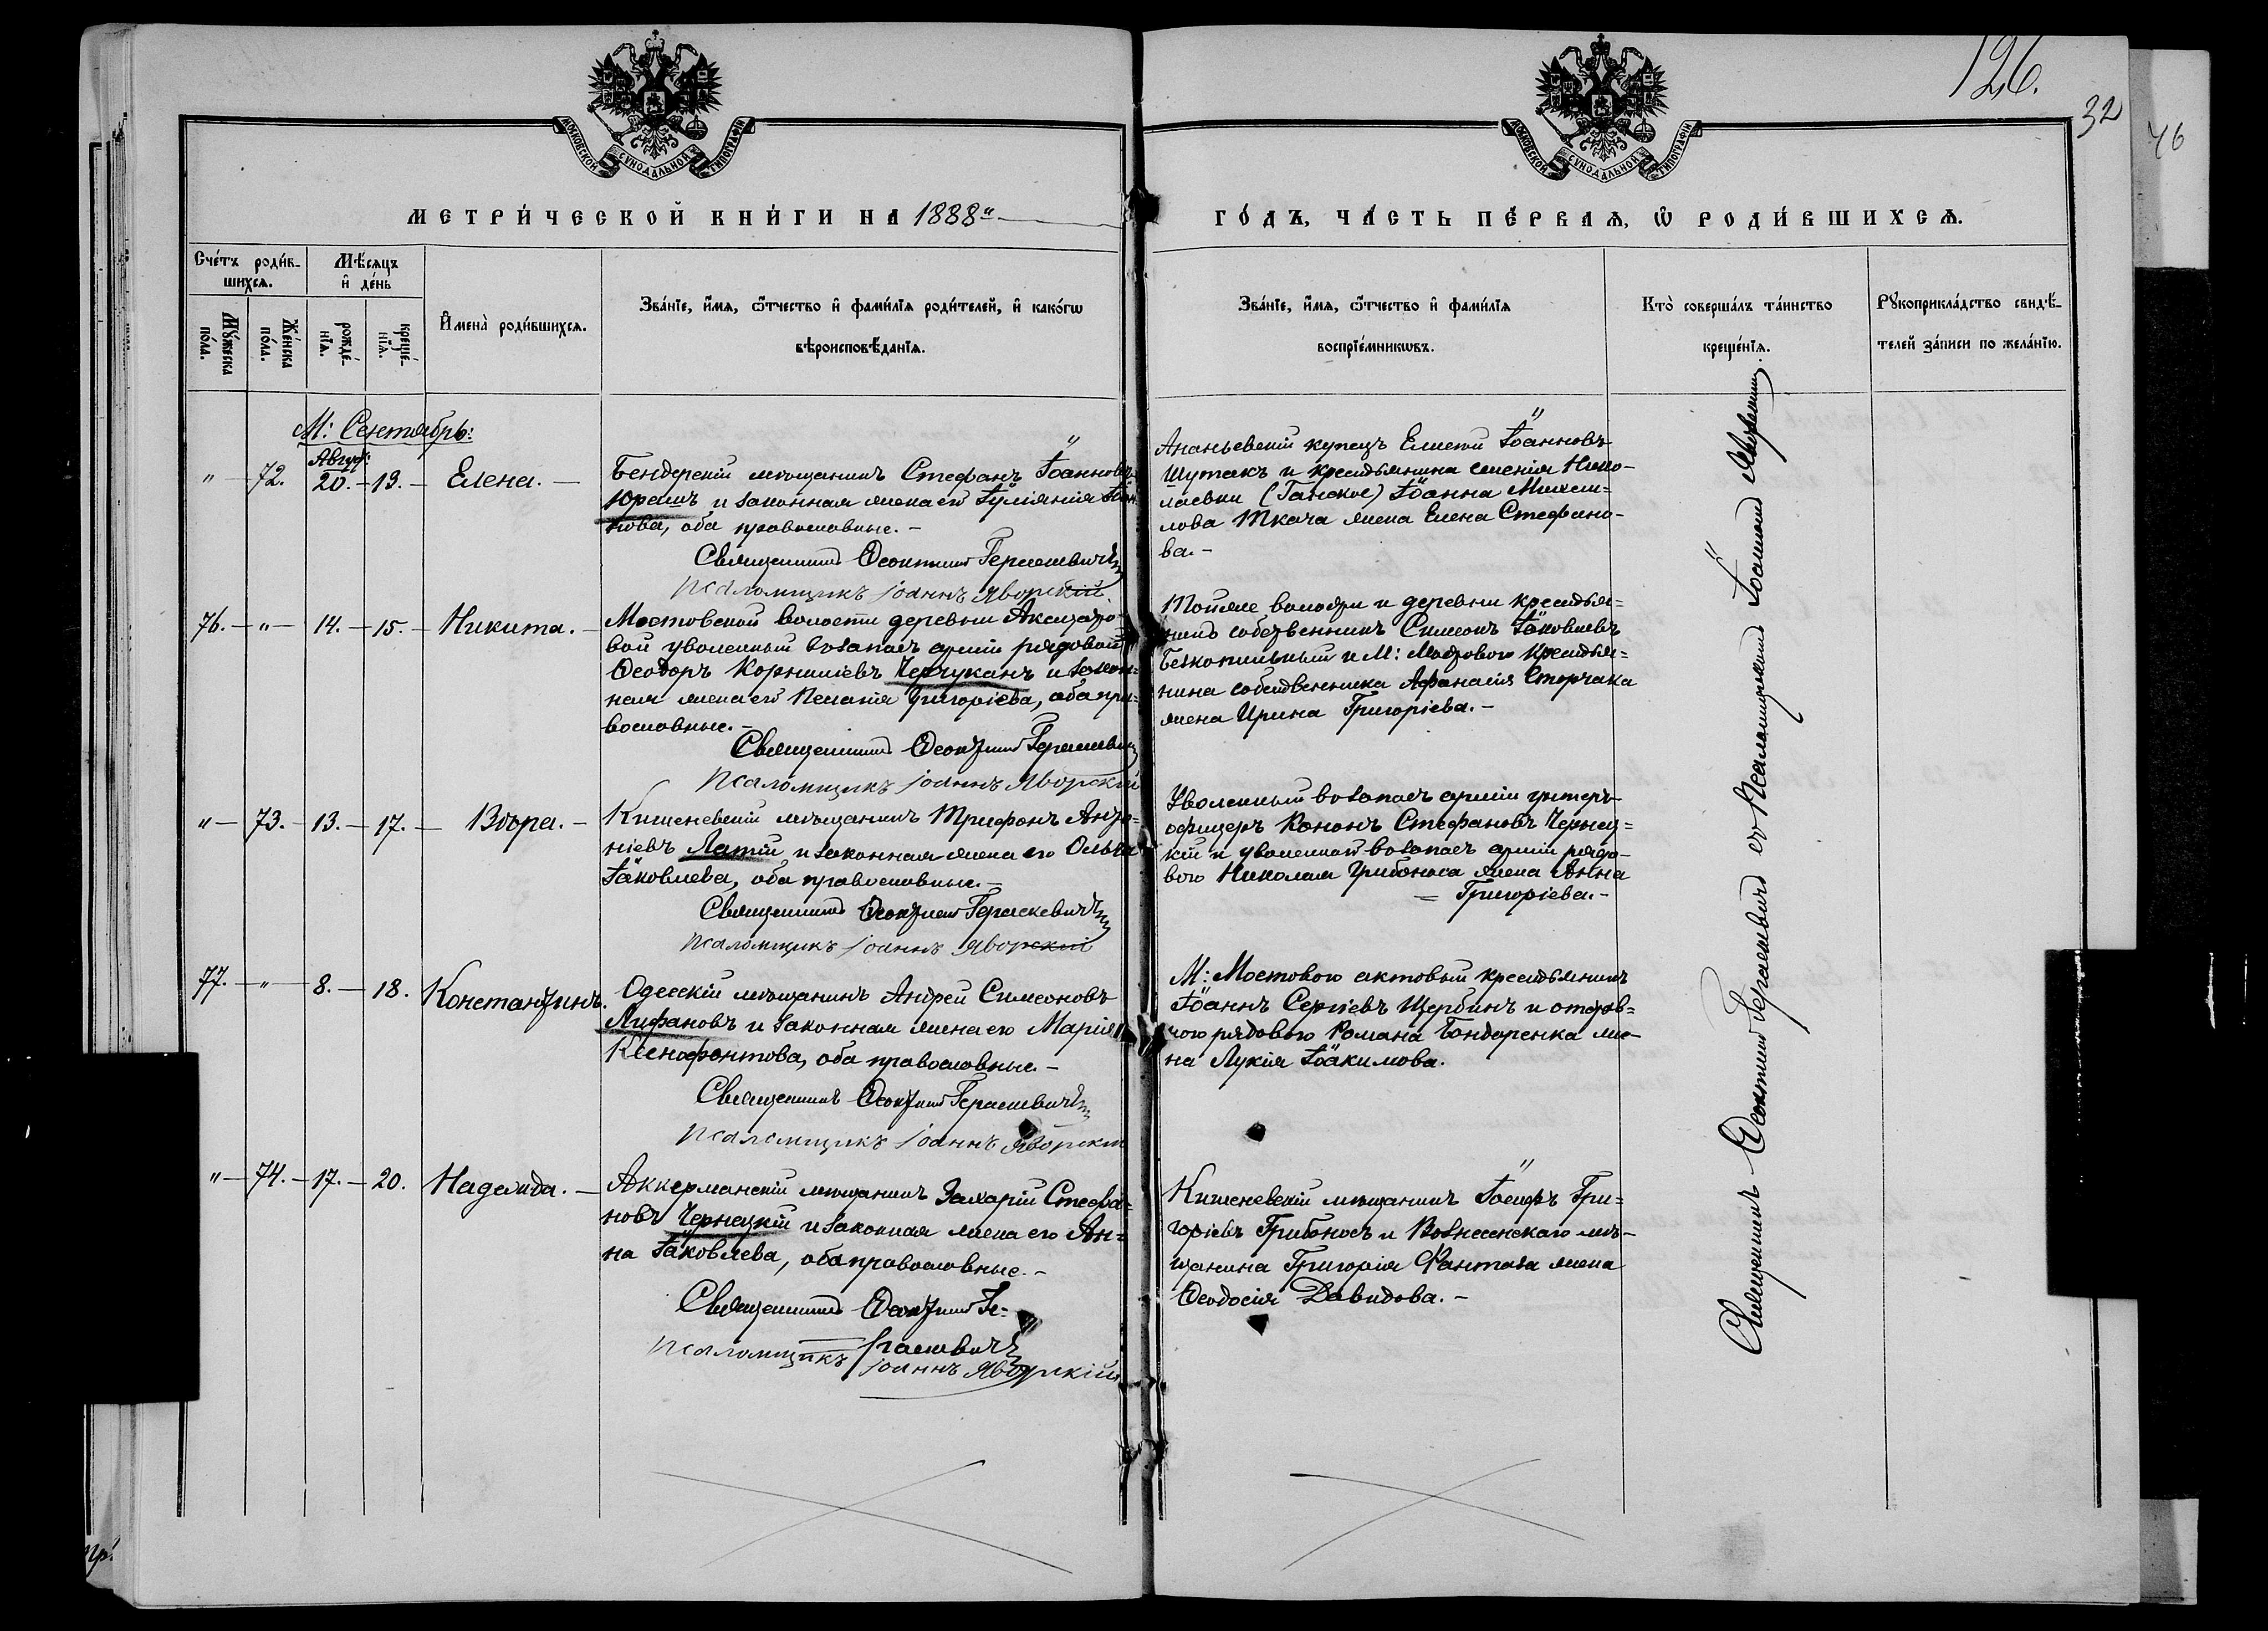 126.
32
76
МОСКОВСКОЙ СѴНОДАЛЬНОЙ ТИПОГРАФІИ
МОСКОВСКОЙ СѴНОДАЛЬНОЙ ТИПОГРАФІИ
МЕТРИ́ЧЕСКОЙ КНИ́ГИ НА 1888й
ГО́ДЪ, ЧА́СТЬ ПЕ́РВАѦ, Ѡ РОДИ́ВШИХСѦ.
Сче́тъ роди́в-
шихсѧ.
Мѣ́сѧцъ
и҆ де́нь
Мꙋ́жеска
по́ла.
Же́нска
по́ла.
рожде́-
нїѧ.
креще́-
нїѧ.
И҆мена̀ роди́вшихсѧ.
Зва́нїе, и҆́мѧ, ѻ҆́тчество и҆ фами́лїѧ роди́телей, и҆ како́гѡ
вѣроисповѣ́данїѧ.
Зва́нїе, и҆́мѧ, ѻ҆́тчество и҆ фами́лїѧ
воспрїе́мникѡвъ.
Кто̀ соверша́лъ та́инство
креще́нїѧ.
Рꙋкоприкла́дство свидѣ́-
телей за́писи по жела́нїю.
М: Сентябрь:
Авгус:
" — 72. 20. — 13. — Елена. —
Бендерскій мѣщанинъ Стефанъ Іоанновъ
Юрашъ и законная жена его Іуліанія Іоан-
нова, оба православные. —
Священникъ Ѳеоктистъ Герасевичъ
Псаломщикъ Іоаннъ Яворскій
Ананьевскій купецъ Елисей Іоанновъ
Шутакъ и крестьянина селенія Нико-
лаевки (Ганское) Іоанна Михаи-
лова Ткача жена Елена Стефано-
ва. —
76. — " — 14. — 15. — Никита. —
Мостовской волости деревни Аксиутро-
вой уволенный въ запасъ арміи рядовой
Ѳеодоръ Корниліевъ Черчуканъ и закон-
ная жена его Пелагія Григоріева, оба пра-
вославные. —
Священникъ Ѳеоктистъ Герасевичъ
Псаломщикъ Іоаннъ Яворскій
Той же волости и деревни крестья-
нинъ собственникъ Симеонъ Іаковлевъ
Безкопыльный и М: Мостового крестья-
нина собственника Афанасія Сторчака
жена Ирина Григоріева. —
" — 73. — 13. — 17. — Вѣра. —
Кишеневскій мѣщанинъ Трифонъ Анто-
ніевъ Латій и законная жена его Ольга
Іаковлева, оба православные. —
Священникъ Ѳеоктистъ Герасевичъ
Псаломщикъ Іоаннъ Яворскій
Уволенный въ запасъ арміи унтеръ-
офицеръ Кононъ Стефановъ Чернец-
кій и уволеннаго въ запасъ арміи рядо-
вого Николая Грибоноса жена Анна
= Григоріева. —
77. — " — 8. — 18. Константинъ.
Одесскій мѣщанинъ Андрей Симеоновъ
Лифановъ и законная жена его Марія
Ксенофонтова, оба православные. —
Священникъ Ѳеоктистъ Герасевичъ
Псаломщикъ Іоаннъ Яворскій
М: Мостового актовый крестьянинъ
Іоаннъ Сергіевъ Щербинъ и отстав-
ного рядового Романа Бондаренка же-
на Лукія Іоакимова.
" — 74. — 17. — 20. Надежда. —
Аккерманскій мѣщанинъ Захарій Стефа-
новъ Чернецкій и законная жена его Ан-
на Іаковлева, оба православные. —
Священникъ Ѳеоктистъ Ге-
расевичъ
Псаломщикъ Іоаннъ Яворскій
Кишеневскій мѣщанинъ Іосифъ Гри-
горіевъ Грибоносъ и Вознесенскаго мѣ-
щанина Григорія Фантаза жена
Ѳеодосія Давидова. —
Священникъ Ѳеоктистъ Герасевичъ съ Псаломщикомъ Іоанномъ Яворскимъ